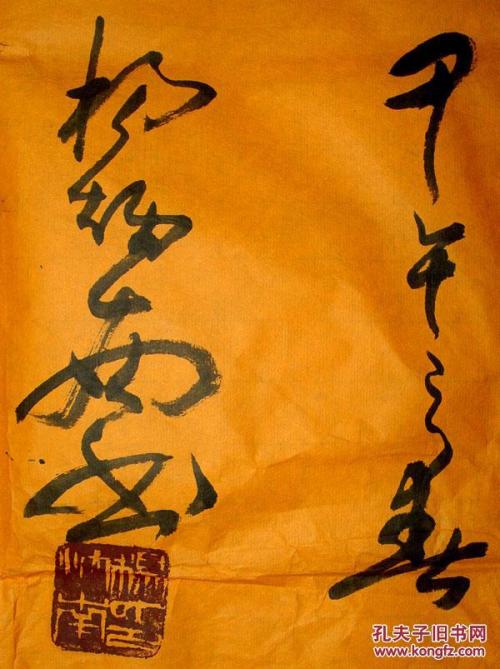 甲午之春
杨南书
孔夫子旧书网
www.kongfz.com